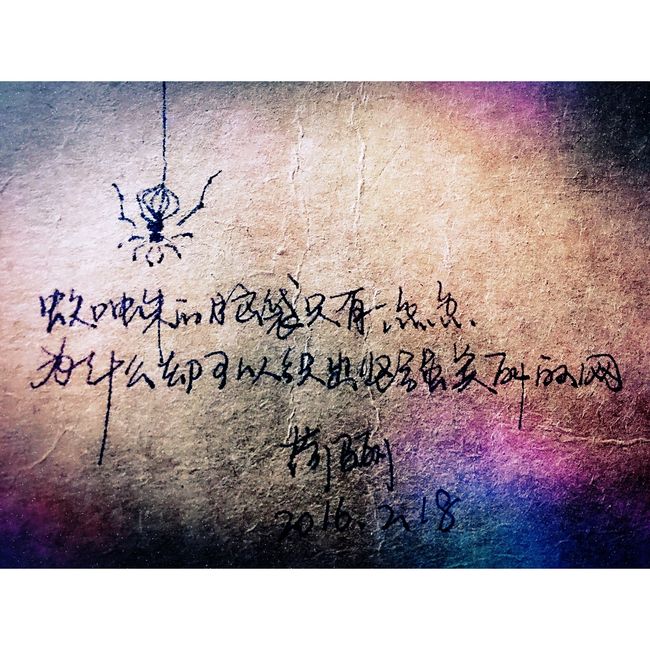 蜘蛛的脑袋只有一点点、
为什么却可以织出坚强美丽的网
2016.2.18